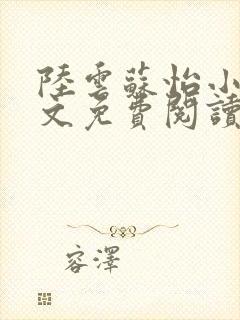 陸雲蘇怡小
文免費閱讀
容澤